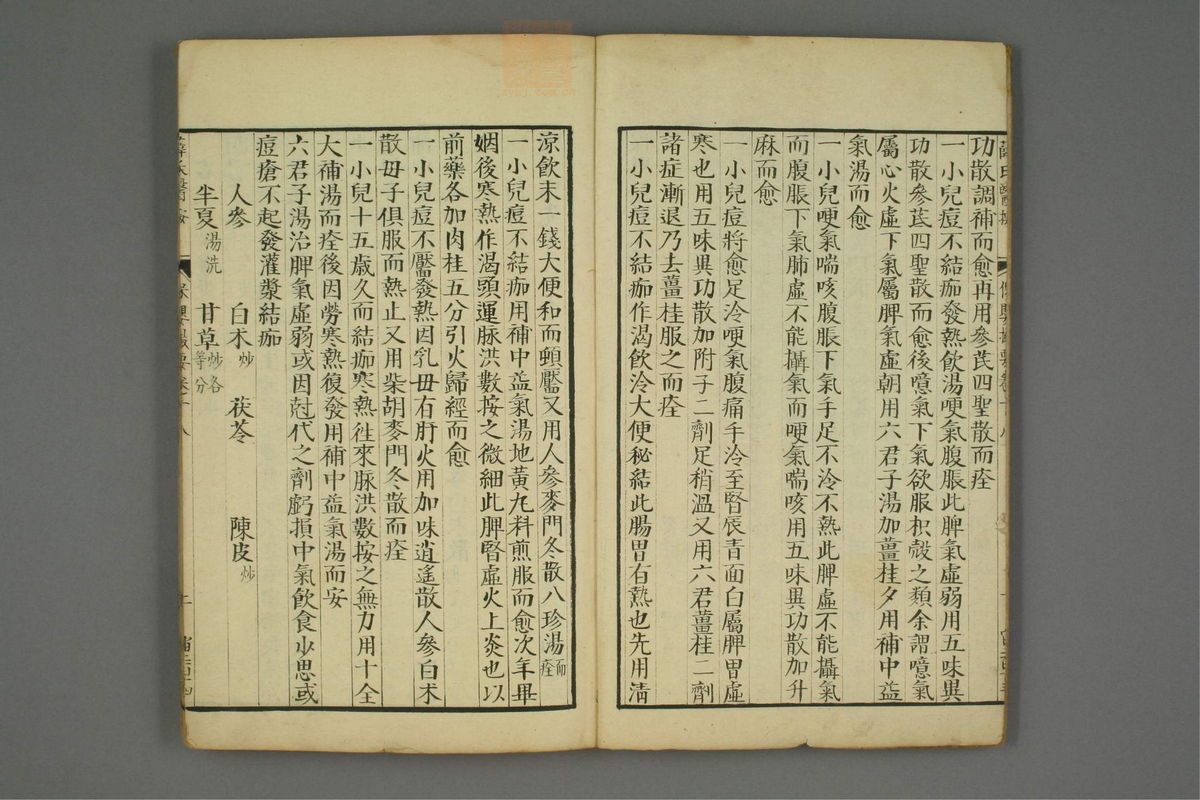 功散調補而愈再用參芪四聖散而痊
一小兒痘不結痂發熱飲湯哽氣腹脹此脾氣虛弱用五味異
功散參芪四聖散而愈後噫氣下氣欲服枳殼之類余謂噫氣
屬心火虛下氣屬脾氣虛朝用六君子湯加薑桂夕用補中益
氣湯而愈
一小兒哽氣喘咳腹脹下氣手足不冷不熱此脾虛不能攝氣
而腹脹下氣肺虛不能攝氣而哽氣喘咳用五味異功散加升
麻而愈
一小兒痘將愈足冷哽氣腹痛手冷至腎唇青面白屬脾胃虛
寒也用五味異功散加附子二劑足稍溫又用六君薑桂二劑
諸症漸退乃去薑桂服之而痊
一小兒痘不結痂作渴飲冷大便秘結此腸胃有熱也先用清
涼飲末一錢大便和而頓靨又用人參麥門冬散八珍湯而痊
一小兒痘不結痂用補中益氣湯地黃丸料煎服而愈次年畢
姻後寒熱作渴頭運脉洪數按之微細此脾腎虛火上炎也以
前藥各加肉桂五分引火歸經而愈
一小兒痘不靨發熱因乳母有肝火用加味逍遙散人參白朮
散母子俱服而熱止又用柴胡麥門冬散而痊
一小兒十五歲久而結痂寒熱徃來脉洪數按之無力用十全
大補湯而痊後因勞寒熱復發用補中益氣湯而安
六君子湯治脾氣虛弱或因尅代之劑虧損中氣飲食少思或
痘瘡不起發灌漿結痂
人參 白朮炒 茯苓 陳皮炒
半夏湯洗 甘草炒各等分
薛氏醫按